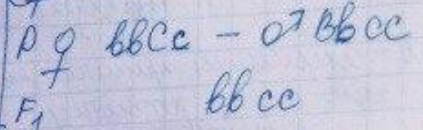 P ♀ bbCc – ♂ Bbcc
F₁ bbcc